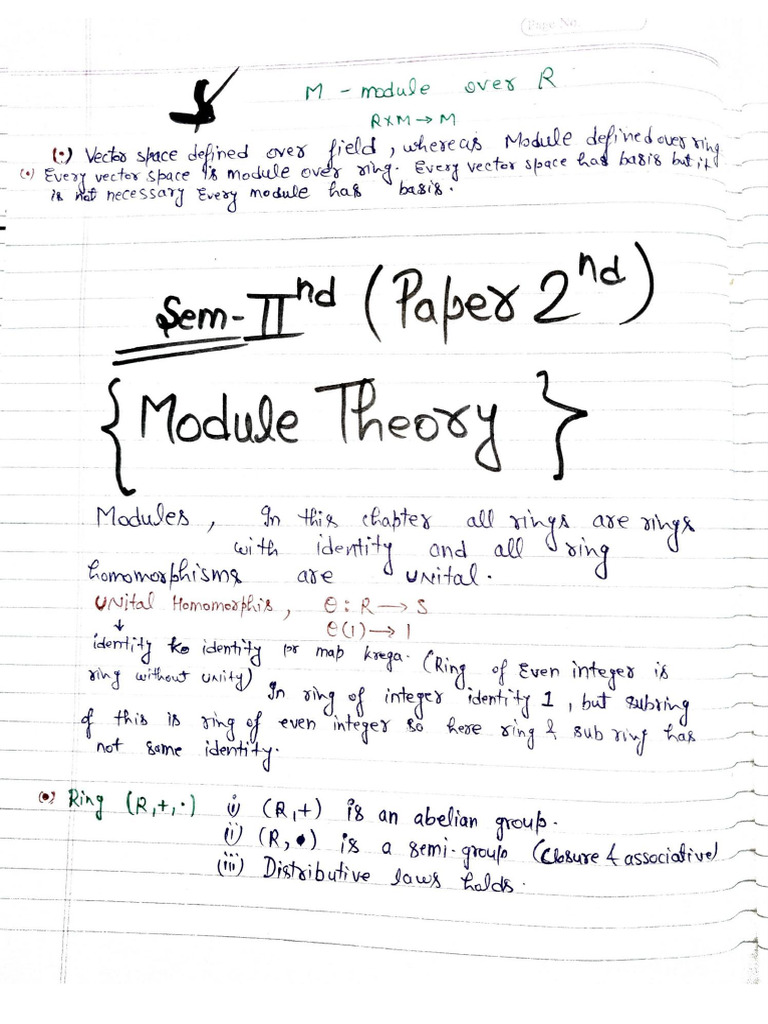 Page No.
M - module over R
R×M → M
(•) Vector space defined over field, whereas Module defined over ring
(•) Every vector space is module over ring. Every vector space has basis but it
is not necessary Every module has basis.
Sem-IInd (Paper 2nd)
{Module Theory}
Modules, In this chapter all rings are rings
with identity and all ring
homomorphisms are unital.
Unital Homomorphis, θ : R → S
θ(1) → 1
↓
identity ko identity pr map krega. (Ring of Even integer is
ring without unity) In ring of integer identity 1, but subring
of this is ring of even integer so here ring & sub ring has
not same identity.
(•) Ring (R,+,·) i) (R,+) is an abelian group.
(i) (R,•) is a semi-group (closure & associative)
(iii) Distributive laws holds.